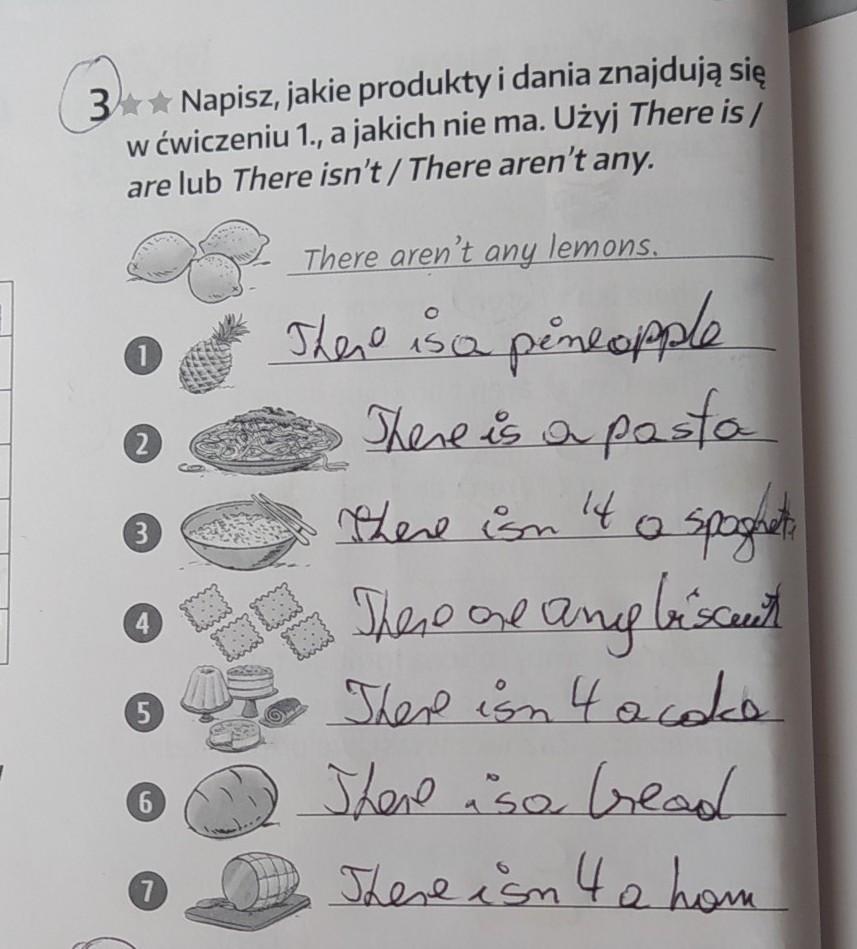 3 ★★ Napisz, jakie produkty i dania znajdują się
w ćwiczeniu 1., a jakich nie ma. Użyj There is /
are lub There isn't / There aren't any.
There aren't any lemons.
1 There is a pineapple
2 There is a pasta
3 There isn't a spaghetti
4 There are any biscuit
5 There isn't a
6 There is a bread
7 There isn't a ham